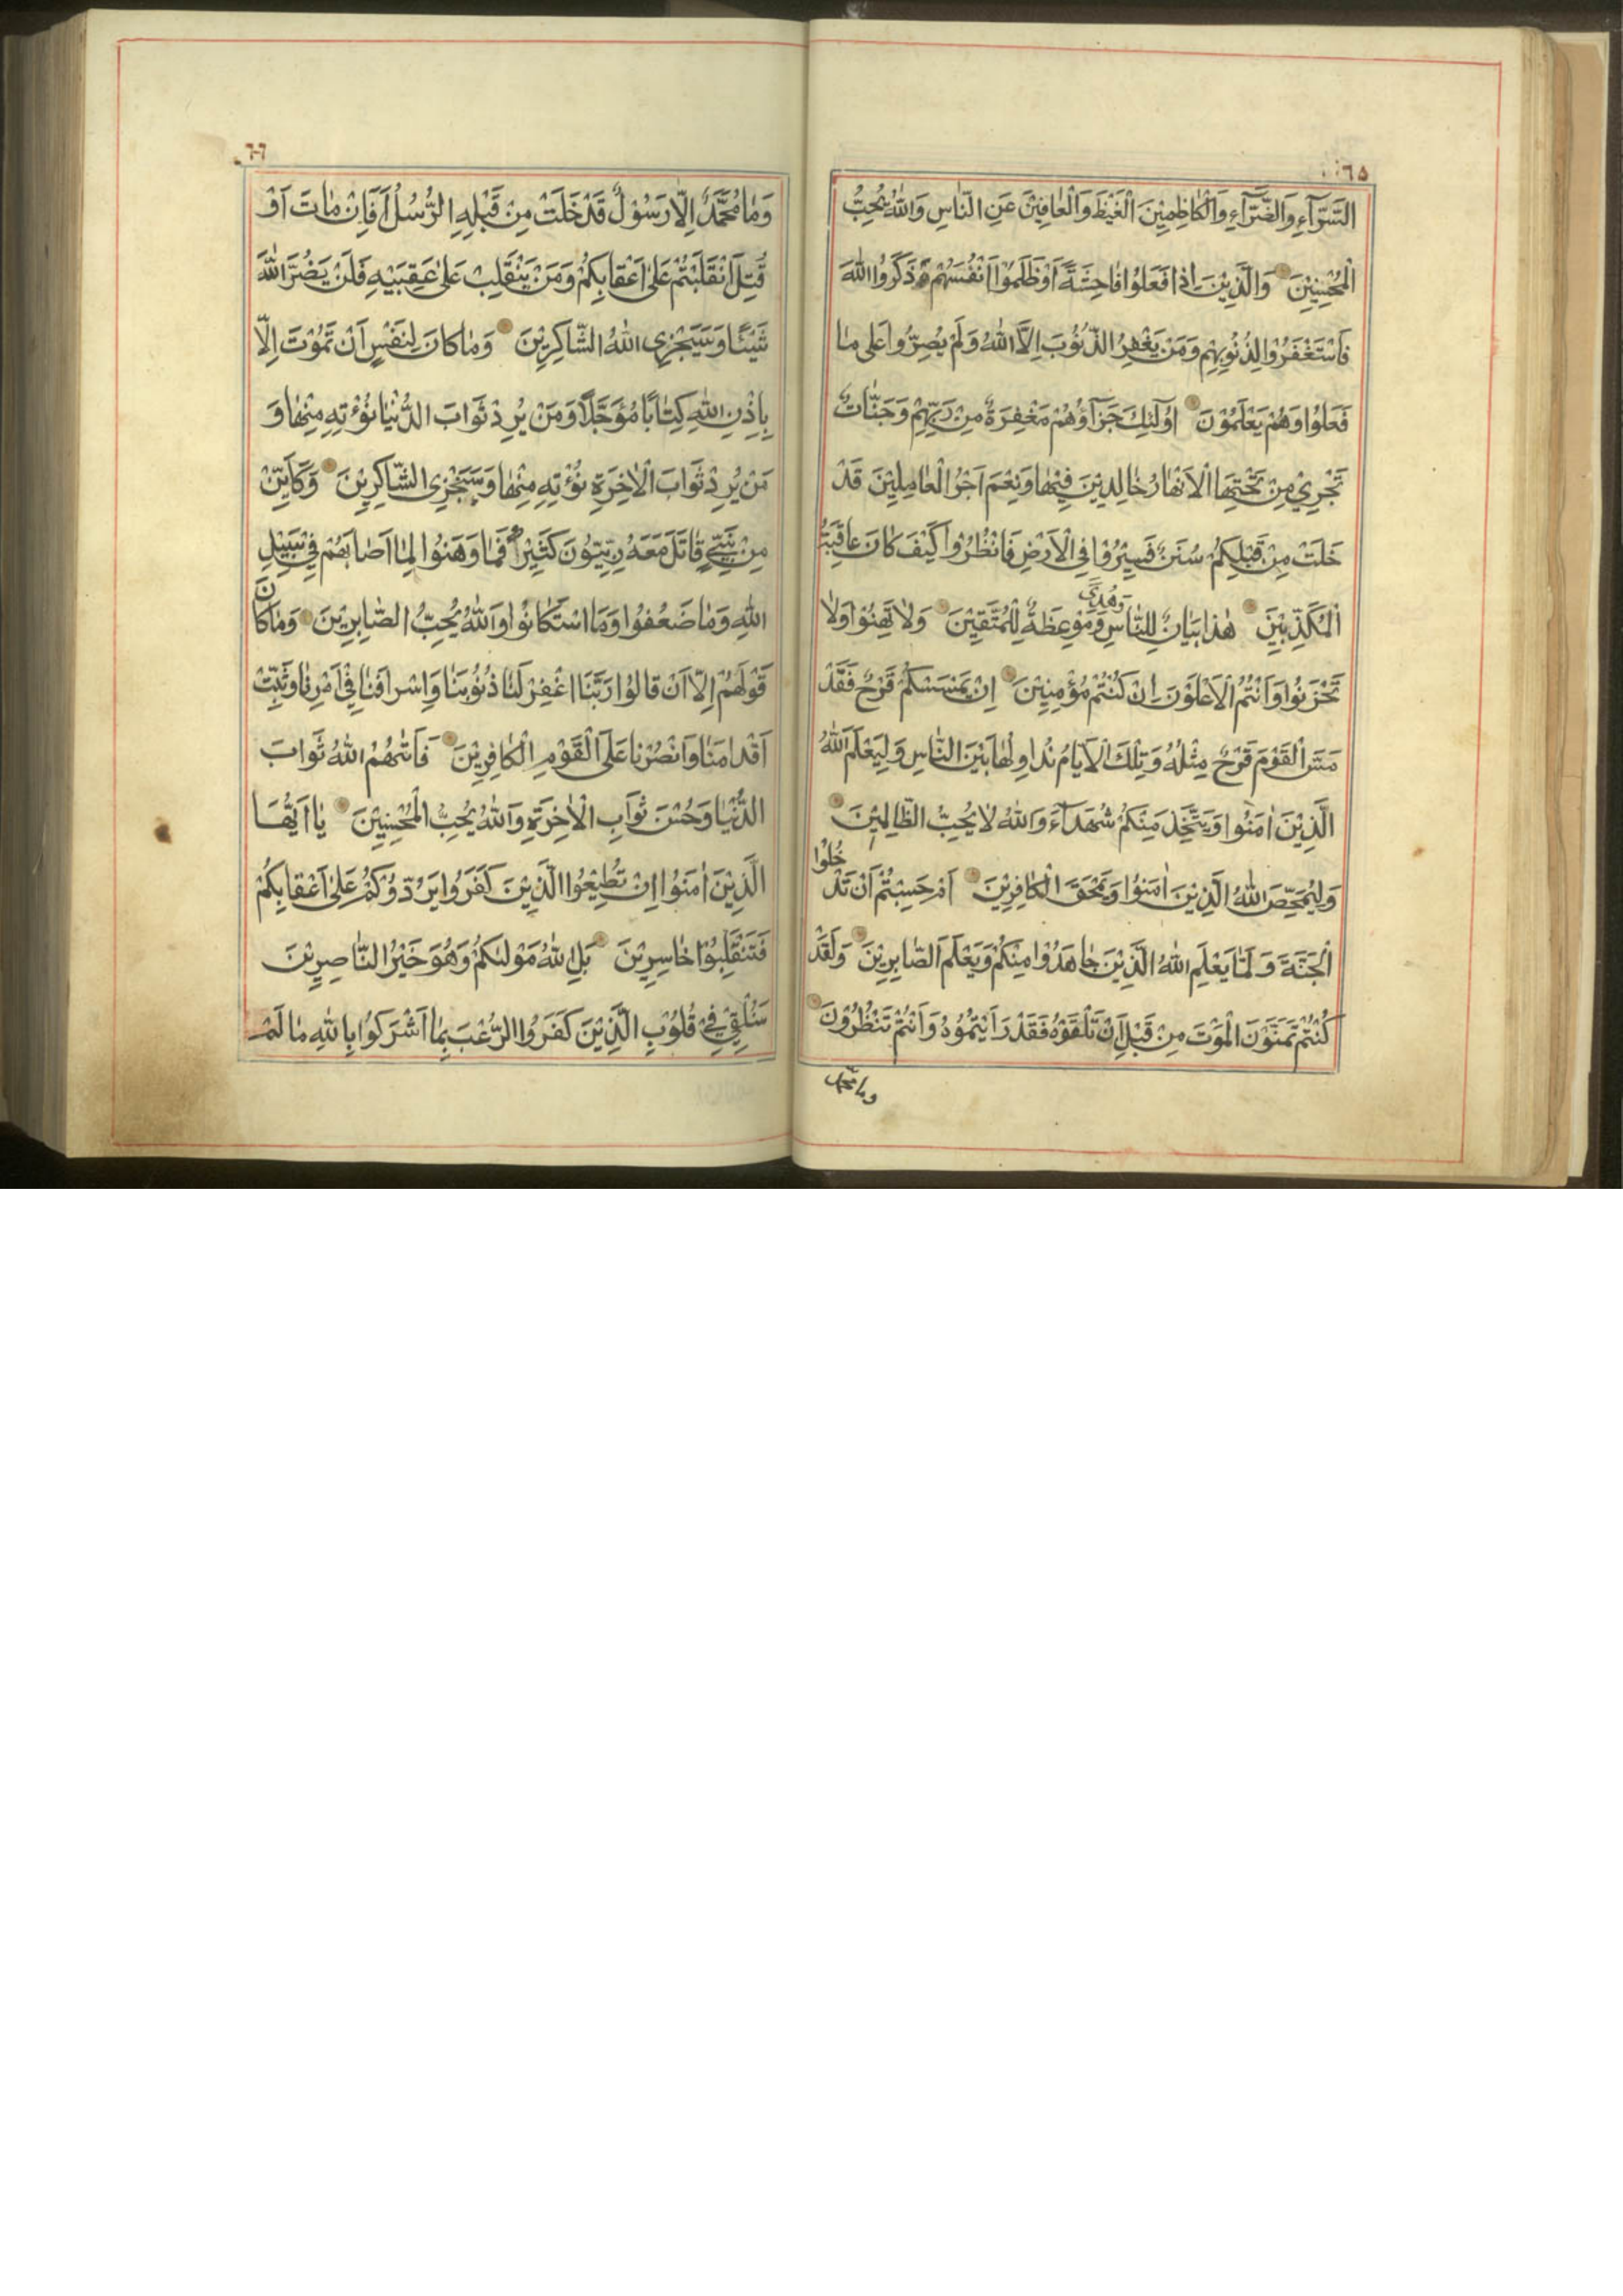 ٦٥
السَّرَّآءِ وَالضَّرَّآءِ وَالْكَاظِمِيْنَ الْغَيْظَ وَالْعَافِيْنَ عَنِ النَّاسِ وَاللّٰهُ يُحِبُّ
الْمُحْسِنِيْنَ وَالَّذِيْنَ اِذَا فَعَلُوْا فَاحِشَةً اَوْ ظَلَمُوْا اَنْفُسَهُمْ ذَكَرُوا اللّٰهَ
فَاسْتَغْفَرُوْا لِذُنُوْبِهِمْ وَمَنْ يَغْفِرُ الذُّنُوْبَ اِلَّا اللّٰهُ وَلَمْ يُصِرُّوْا عَلٰى مَا
فَعَلُوْا وَهُمْ يَعْلَمُوْنَ اُولٰٓئِكَ جَزَآؤُهُمْ مَغْفِرَةٌ مِنْ رَبِّهِمْ وَجَنَّاتٌ
تَجْرِيْ مِنْ تَحْتِهَا الْاَنْهَارُ خَالِدِيْنَ فِيْهَا وَنِعْمَ اَجْرُ الْعَامِلِيْنَ قَدْ
خَلَتْ مِنْ قَبْلِكُمْ سُنَنٌ فَسِيْرُوْا فِي الْاَرْضِ فَانْظُرُوْا كَيْفَ كَانَ عَاقِبَةُ
الْمُكَذِّبِيْنَ هٰذَا بَيَانٌ لِلنَّاسِ وَهُدًى وَمَوْعِظَةٌ لِلْمُتَّقِيْنَ وَلَا تَهِنُوْا وَلَا
تَحْزَنُوْا وَاَنْتُمُ الْاَعْلَوْنَ اِنْ كُنْتُمْ مُؤْمِنِيْنَ اِنْ يَمْسَسْكُمْ قَرْحٌ فَقَدْ
مَسَّ الْقَوْمَ قَرْحٌ مِثْلُهُ وَتِلْكَ الْاَيَّامُ نُدَاوِلُهَا بَيْنَ النَّاسِ وَلِيَعْلَمَ اللّٰهُ
الَّذِيْنَ اٰمَنُوْا وَيَتَّخِذَ مِنْكُمْ شُهَدَآءَ وَاللّٰهُ لَا يُحِبُّ الظَّالِمِيْنَ
وَلِيُمَحِّصَ اللّٰهُ الَّذِيْنَ اٰمَنُوْا وَيَمْحَقَ الْكَافِرِيْنَ اَمْ حَسِبْتُمْ اَنْ تَدْخُلُوْا
الْجَنَّةَ وَلَمَّا يَعْلَمِ اللّٰهُ الَّذِيْنَ جَاهَدُوْا مِنْكُمْ وَيَعْلَمَ الصَّابِرِيْنَ وَلَقَدْ
كُنْتُمْ تَمَنَّوْنَ الْمَوْتَ مِنْ قَبْلِ اَنْ تَلْقَوْهُ فَقَدْ رَاَيْتُمُوْهُ وَاَنْتُمْ تَنْظُرُوْنَ
وما محمد
٦٦
وَمَا مُحَمَّدٌ اِلَّا رَسُوْلٌ قَدْ خَلَتْ مِنْ قَبْلِهِ الرُّسُلُ اَفَاِنْ مَاتَ اَوْ
قُتِلَ انْقَلَبْتُمْ عَلٰى اَعْقَابِكُمْ وَمَنْ يَنْقَلِبْ عَلٰى عَقِبَيْهِ فَلَنْ يَضُرَّ اللّٰهَ
شَيْئًا وَسَيَجْزِي اللّٰهُ الشَّاكِرِيْنَ وَمَا كَانَ لِنَفْسٍ اَنْ تَمُوْتَ اِلَّا
بِاِذْنِ اللّٰهِ كِتَابًا مُؤَجَّلًا وَمَنْ يُرِدْ ثَوَابَ الدُّنْيَا نُؤْتِهِ مِنْهَا وَ
مَنْ يُرِدْ ثَوَابَ الْاٰخِرَةِ نُؤْتِهِ مِنْهَا وَسَنَجْزِي الشَّاكِرِيْنَ وَكَاَيِّنْ
مِنْ نَبِيٍّ قَاتَلَ مَعَهُ رِبِّيُّوْنَ كَثِيْرٌ فَمَا وَهَنُوْا لِمَا اَصَابَهُمْ فِيْ سَبِيْلِ
اللّٰهِ وَمَا ضَعُفُوْا وَمَا اسْتَكَانُوْا وَاللّٰهُ يُحِبُّ الصَّابِرِيْنَ وَمَا كَانَ
قَوْلَهُمْ اِلَّا اَنْ قَالُوْا رَبَّنَا اغْفِرْ لَنَا ذُنُوْبَنَا وَاِسْرَافَنَا فِيْ اَمْرِنَا وَثَبِّتْ
اَقْدَامَنَا وَانْصُرْنَا عَلَى الْقَوْمِ الْكَافِرِيْنَ فَاٰتٰىهُمُ اللّٰهُ ثَوَابَ
الدُّنْيَا وَحُسْنَ ثَوَابِ الْاٰخِرَةِ وَاللّٰهُ يُحِبُّ الْمُحْسِنِيْنَ يَا اَيُّهَا
الَّذِيْنَ اٰمَنُوْا اِنْ تُطِيْعُوا الَّذِيْنَ كَفَرُوْا يَرُدُّوْكُمْ عَلٰى اَعْقَابِكُمْ
فَتَنْقَلِبُوْا خَاسِرِيْنَ بَلِ اللّٰهُ مَوْلٰىكُمْ وَهُوَ خَيْرُ النَّاصِرِيْنَ
سَنُلْقِيْ فِيْ قُلُوْبِ الَّذِيْنَ كَفَرُوا الرُّعْبَ بِمَا اَشْرَكُوْا بِاللّٰهِ مَا لَمْ